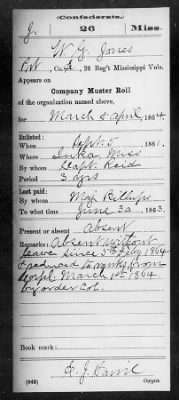 Confederate.
J 26 Miss.
W. G. Jones
Pvt, Co. , 26 Reg't Mississippi Vols.
Appears on
Company Muster Roll
of the organization named above,
for March & April, 1864.
Enlisted:
When Sept. 5, 1861.
Where Iuka Miss
By whom Capt. Reid
Period 3 yrs
Last paid:
By whom Maj Billups
To what time June 30, 1863.
Present or absent
Remarks: Absent without
leave since 5th Feby 1864
& reduced to ranks from
Corpl March 1st 1864
by order Col.
Book mark:
E. J.
(642) Copyist.